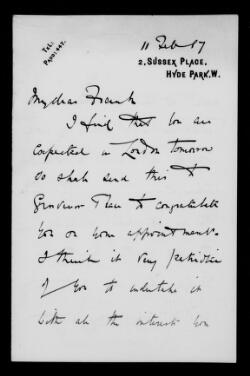 Tel:
Padd: 447.
11 Feb 17
2, Sussex Place,
Hyde Park. W.
My dear Frank
I find that you are
expected in London tomorrow
so shall send this to
Grosvenor Place to congratulate
you on your appointment.
I think it very patriotic
of you to undertake it
with all the interests you